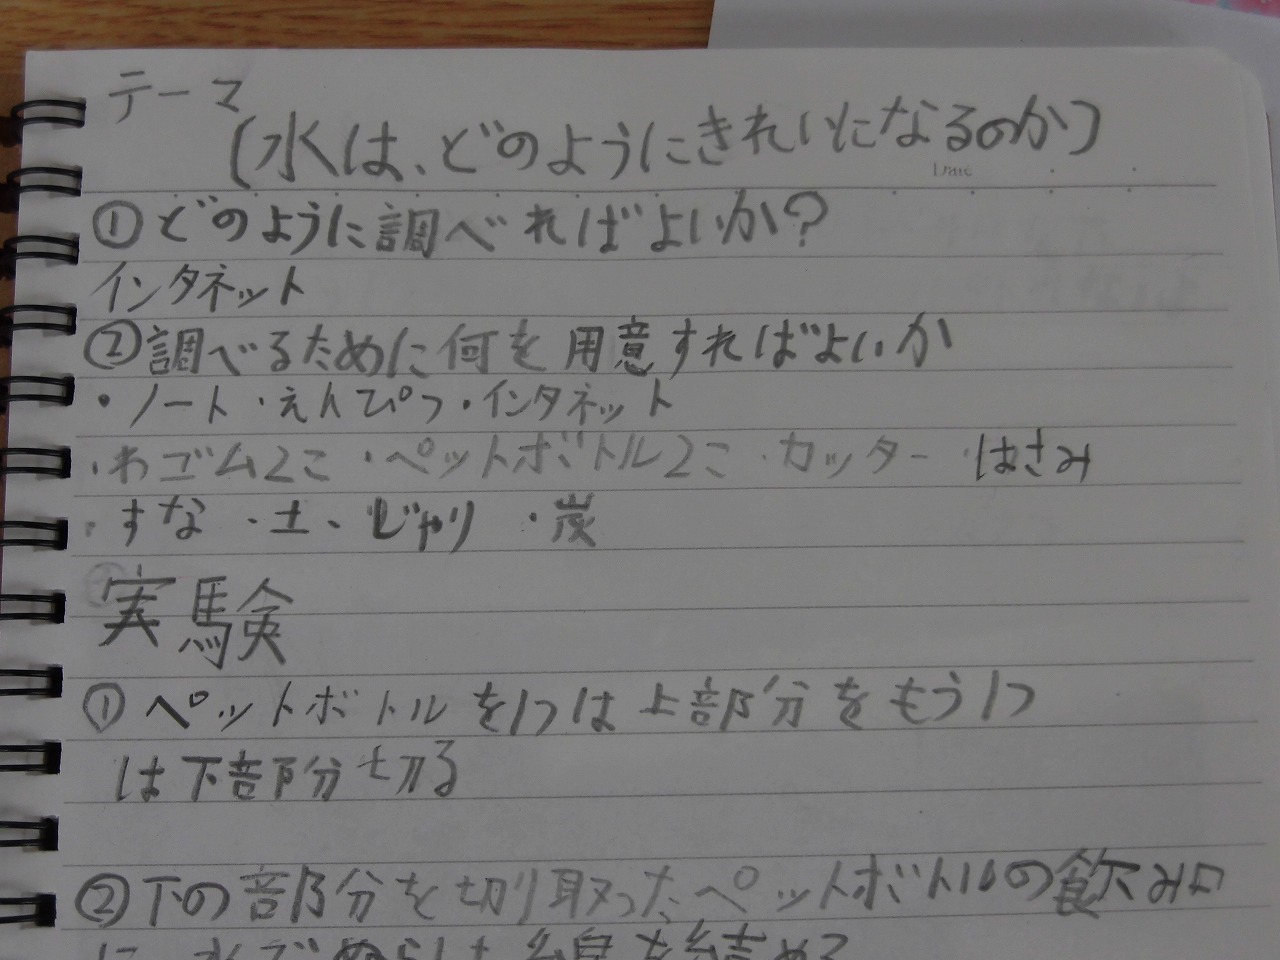 テーマ
(水は、どのようにきれいになるのか)
Date
①どのように調べればよいか?
インタネット
②調べるために何を用意すればよいか
・ノート・えんぴつ・インタネット
・わゴム2こ・ペットボトル2こ・カッター・はさみ
・すな・土、じゃり・炭
実験
①ペットボトルを1つは上部分をもう1つ
は下部分切る
②下の部分を切り取ったペットボトルの飲み口
に、水でぬらした綿を詰める